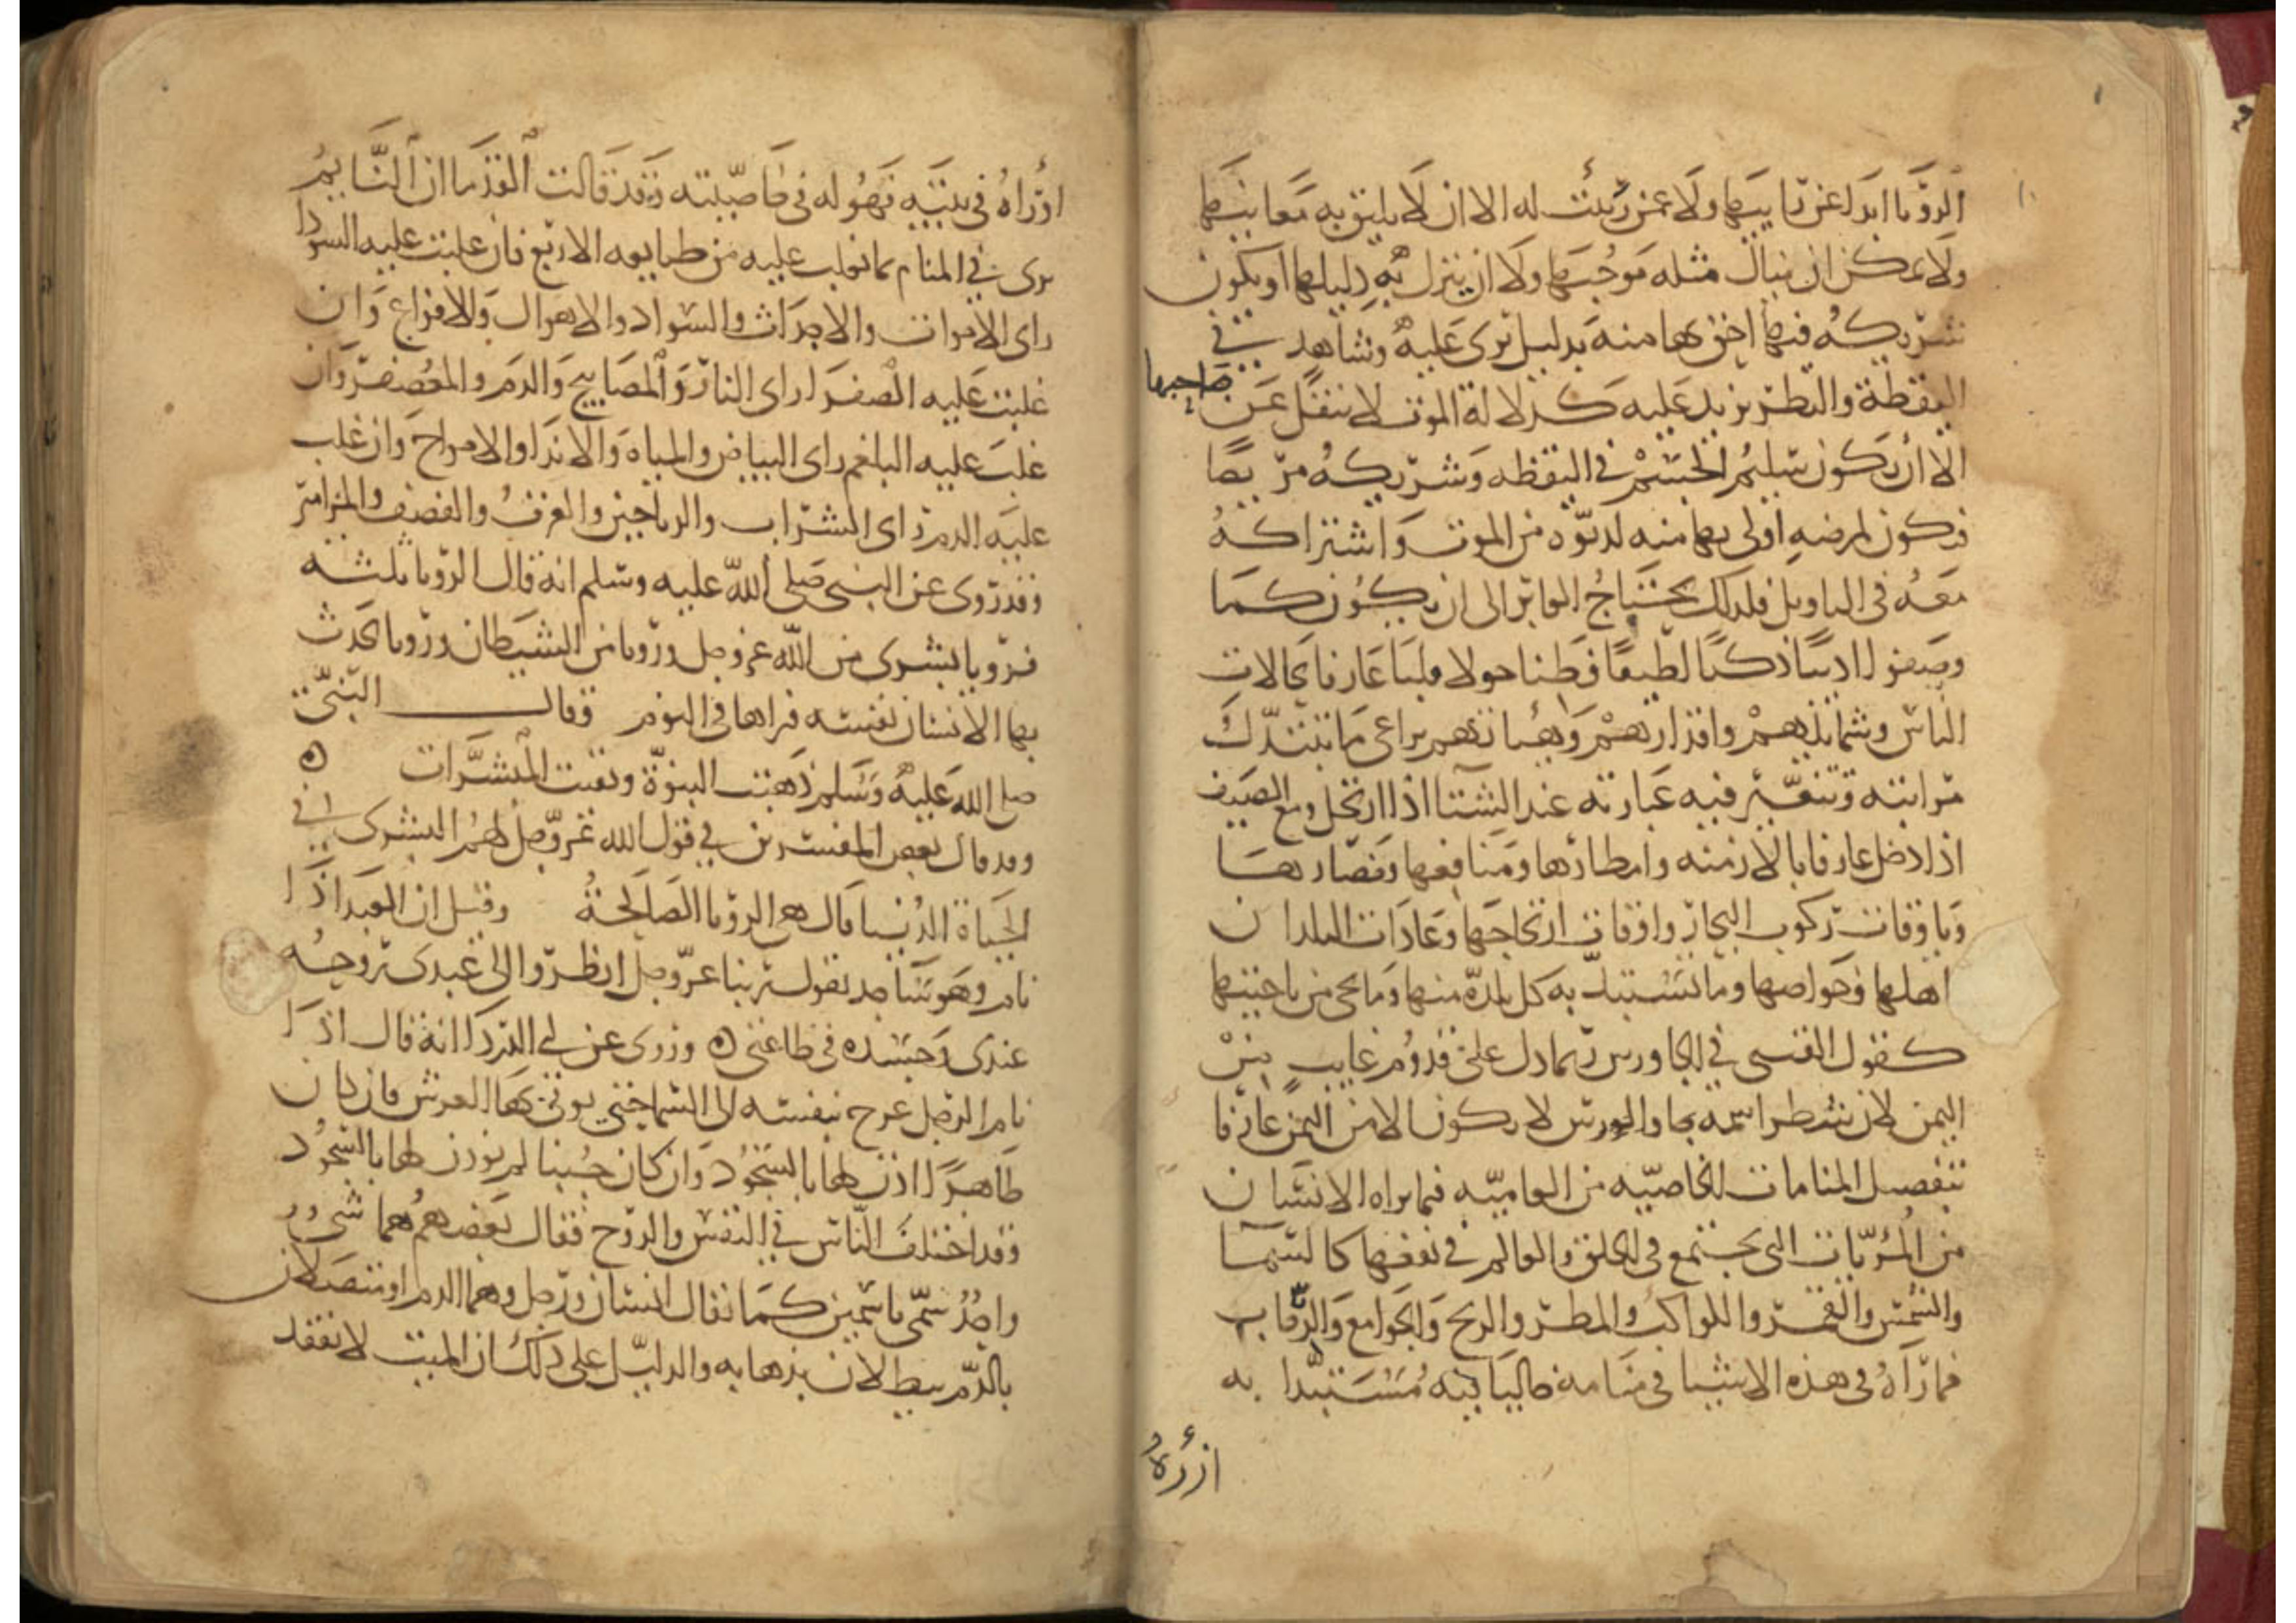 الرؤيا ابدا عن رايیها ولا عمن ريئت له الا ان لا يليق به معانيها
ولا يمكن ان ينال مثله موجبها ولا ان ينزل به دليلها او يكون
شريكه فيها احق بها منه بدليل يرى عليه وشاهد في
اليقظة والنظر يزيد عليه كدلالة الموت لا ينقل عن صاحبها
الا أن يكون سليم الجسم في اليقظه وشريكه مريضا
فيكون لمرضه اولى بها منه لدنوه من الموت واشتراكه
معه في التاويل فلذلك يحتاج العابر الى ان يكون كما
وصفوا اديبا ذكيا لطيفا فطنا عارفا بحالات
الناس وشمايلهم واقدارهم وهيأتهم يراعي ما يتبدل
مرايته وتتغير فيه عبارته عند الشتا اذا ارتحل ومع الصيف
اذا دخل عارفا بالازمنه وامطارها ومنافعها ومضارها
وباوقات ركوب البحار واوقات ارتجاجها وعادات البلدان
اهلها وخواصها وما يستبد به كل بلدة منها وما يجي من ناحيتها
كقول القتبي في الجاورس ربما دل على قدوم غايب من
اليمن لان شطر اسمه جا والورس لا يكون الا من اليمن عارفا
بتفصيل المنامات الخاصيه من العاميه فيما يراه الانسان
من المرئيات التي يجتمع في الخلق والعالم في نفعها كالسما
والشمس والقمر والكواكب والمطر والريح والجوامع والرحاب
فما رآه في هذه الاشيا في منامه خاليا فيه مستبدا به
اورآه
او رآه في بيته فهو له في خاصيته وقد قالت القدما ان النايم
يرى في المنام بما يغلب عليه من طبايعه الاربع فان غلبت عليه السودا
راى الاموات والاجداث والسواد والاهوال والافزاع وان
غلبت عليه الصفرا راى النار والمصابيح والدم والمعصفر وان
غلب عليه البلغم راى البياض والمياه والاندا والامواج وان غلب
عليه الدم راى الشراب والرياحين والعزف والقصف والمزامير
وقد روى عن النبي صلى الله عليه وسلم انه قال الرؤيا ثلثه
فرويا بشرى من الله عز وجل ورويا من الشيطان ورويا يحدث
بها الانسان نفسه فيراها في النوم وقال النبي
صلى الله عليه وسلم ذهبت النبوة وبقيت المبشرات
وقد قال بعض المفسرين في قول الله عز وجل لهم البشرى في
الحياة الدنيا قال هي الرؤيا الصالحة وقيل ان العبد اذا
نام وهو ساجد يقول ربنا عز وجل انظروا الى عبدي روحه
عندي وجسده في طاعتي وروى عن ابي الدرداء انه قال اذا
نام الرجل عرج بنفسه الى السما حتى يوتى بها العرش فان كان
طاهرا اذن لها بالسجود وان كان جنبا لم يوذن لها بالسجود
وقد اختلف الناس في النفس والروح فقال بعضهم هما شيء
واحد سمي باسمين كما يقال انسان ورجل وهما الدم او متصلان
بالدم يبطلان بذهابه والدليل على ذلك ان الميت لا يفقد